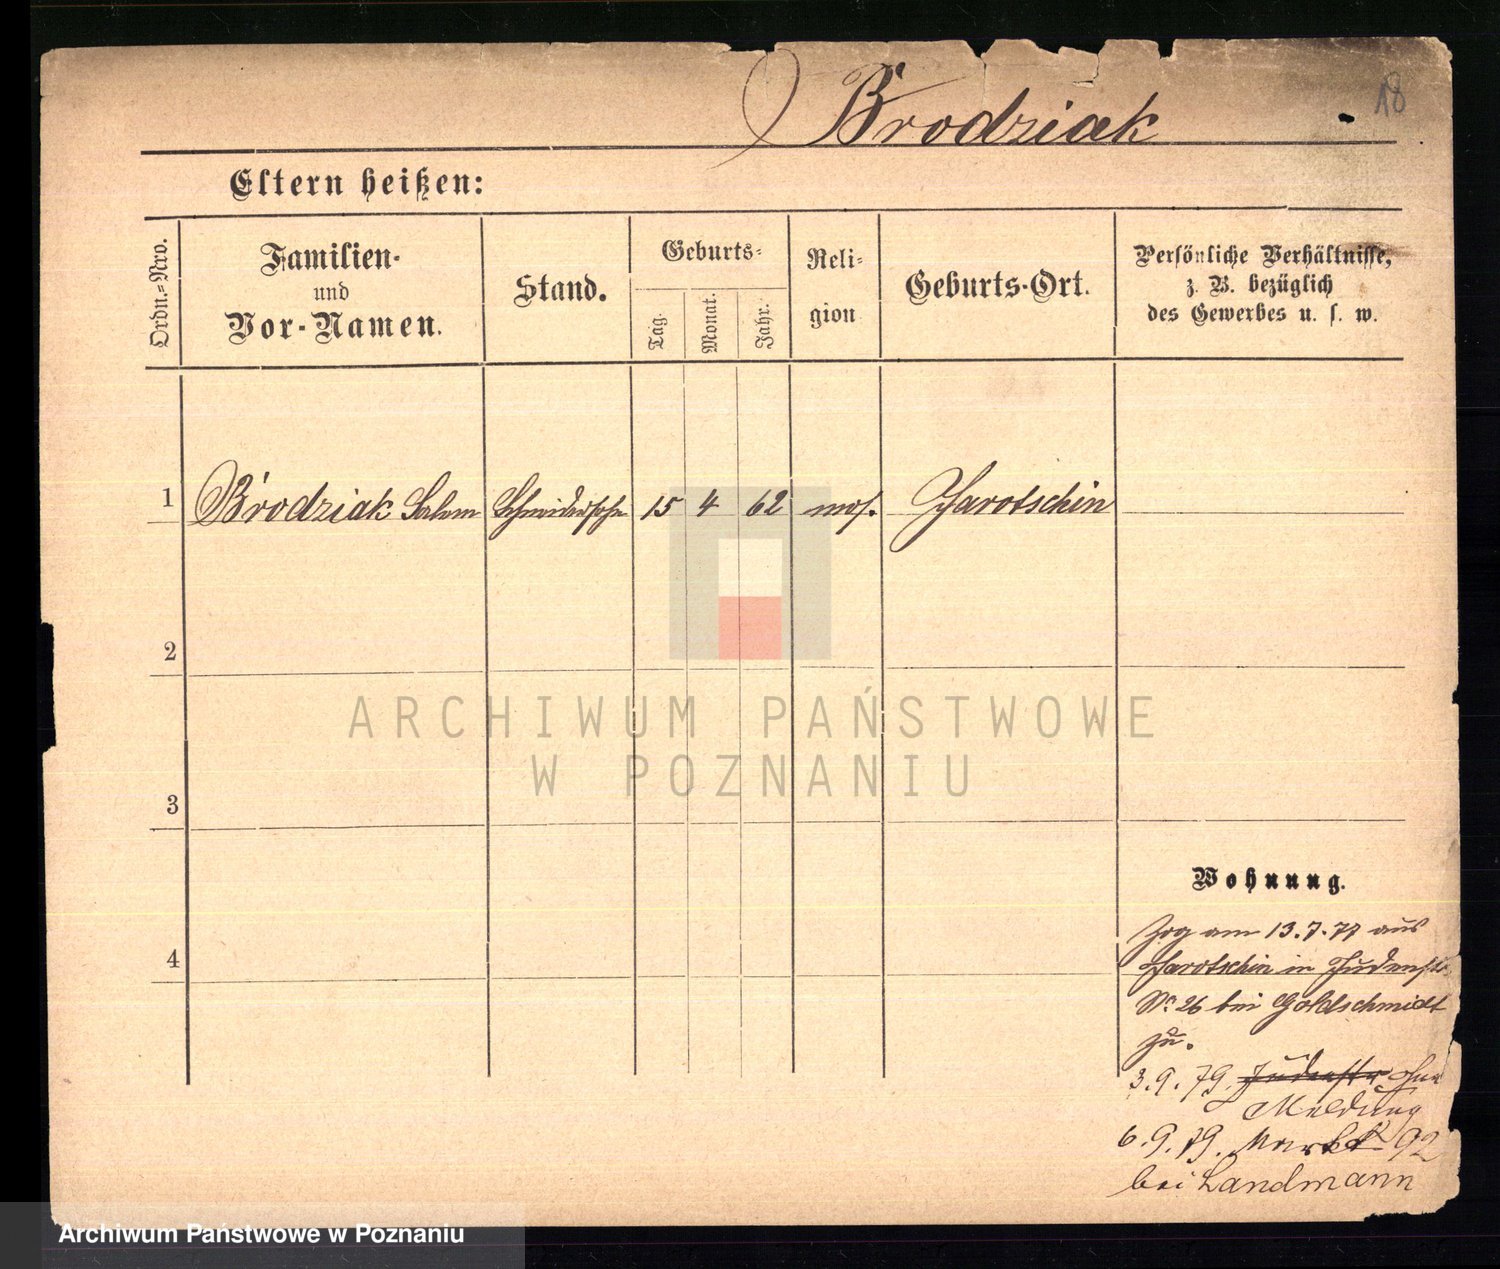 18
Brodziak
Eltern heißen:
Ordn.-Nro.
Familien-
und
Vor-Namen.
Stand.
Geburts-
Tag.
Monat.
Jahr.
Reli-
gion
Geburts-Ort.
Persönliche Verhältnisse,
z. B. bezüglich
des Gewerbes u. s. w.
1 Brodziak Salom Schneidersohn 15 4 62 mos. Jarotschin
2
3
4
ARCHIWUM PAŃSTWOWE
W POZNANIU
Wohnung.
Zog am 13.7.77 aus
Jarotschin in Judenstr
No 26 bei Goldschmidt
zu.
3.9.79. Judenstr ohne
Meldung
6.9.79. Markt 92
bei Landmann
Archiwum Państwowe w Poznaniu